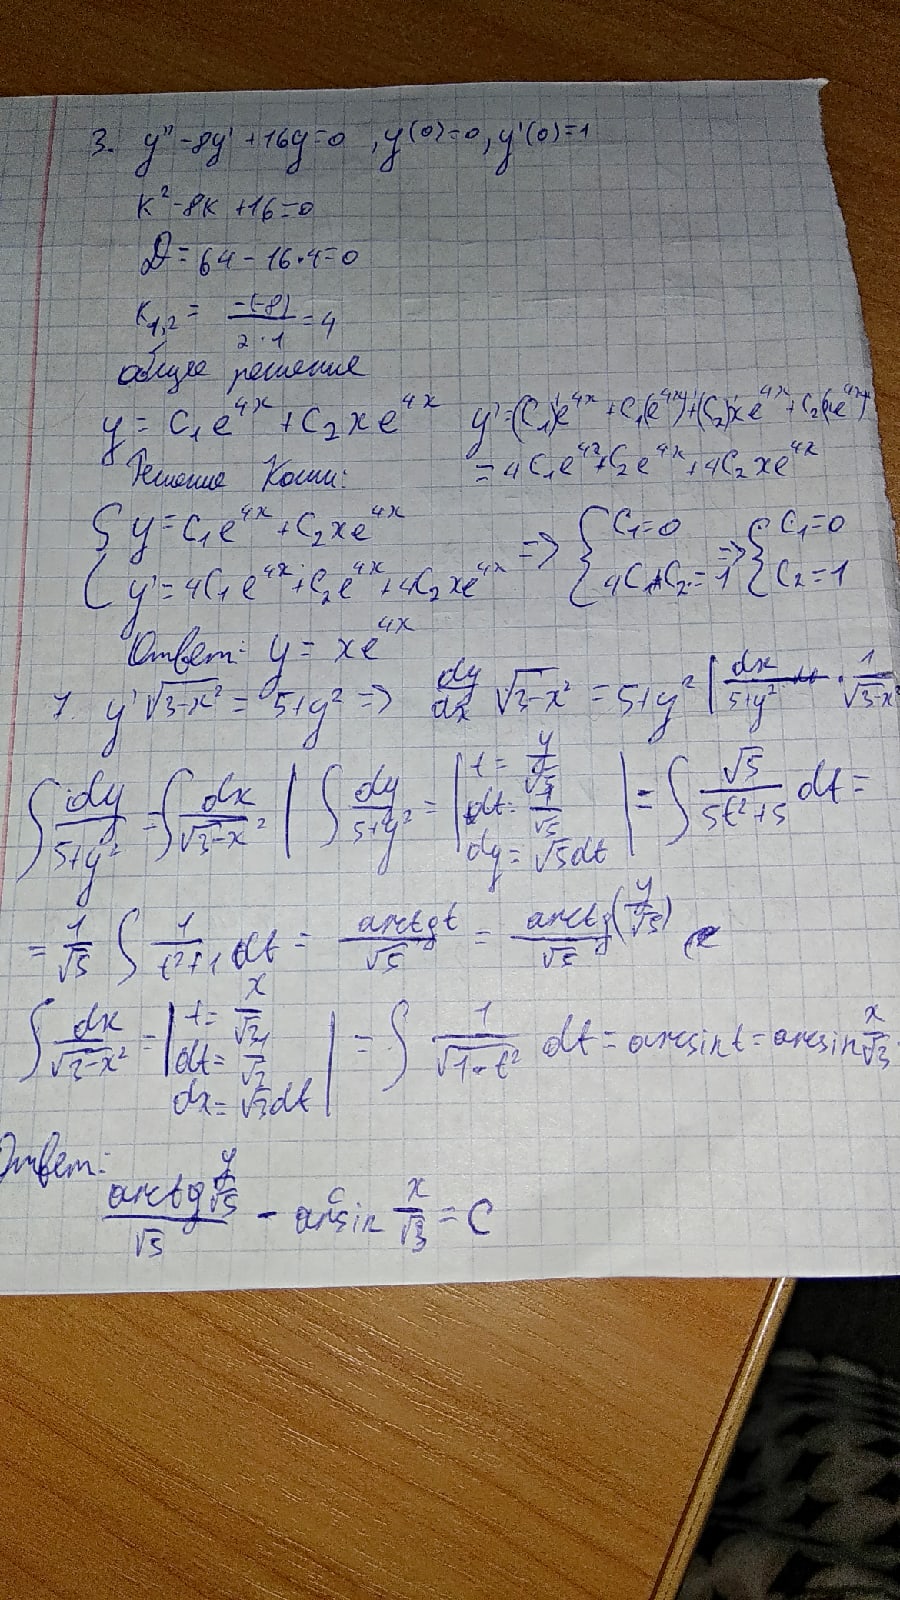 3. y'' - 8y' + 16y = 0 , y(0)=0, y'(0)=1
k² - 8k + 16 = 0
D = 64 - 16·4 = 0
k₁,₂ = -(-8)/2·1 = 4
общее решение
y = C₁e^4x + C₂xe^4x y' = (C₁)'e^4x + C₁(e^4x)' + (C₂)'xe^4x + C₂(xe^4x)'
= 4C₁e^4x + C₂e^4x + 4C₂xe^4x
Решение Коши:
{ y = C₁e^4x + C₂xe^4x => { C₁ = 0 => { C₁ = 0
{ y' = 4C₁e^4x + C₂e^4x + 4C₂xe^4x { 4C₁ + C₂ = 1 { C₂ = 1
Ответ: y = xe^4x
7. y'√3-x² = 5+y² => dy/dx √3-x² = 5+y² | dx/5+y² · 1/√3-x²
∫ dy/5+y² = ∫ dx/√3-x² | ∫ dy/5+y² = | t = y/√5 dt = 1/√5 dy = √5dt | = ∫ √5/5t²+5 dt =
= 1/√5 ∫ 1/t²+1 dt = arctgt/√5 = arctg(y/√5)/√5
∫ dx/√3-x² = | t = x/√3 dt = 1/√3 dx = √3dt | = ∫ 1/√1-t² dt = arcsint = arcsin x/√3
Ответ:
arctg y/√5/√5 - arcsin x/√3 = C